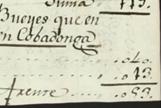 Suma 113.
Bueyes que en
en Cobadonga
.. 40.
.. 13.
frente ... 53.